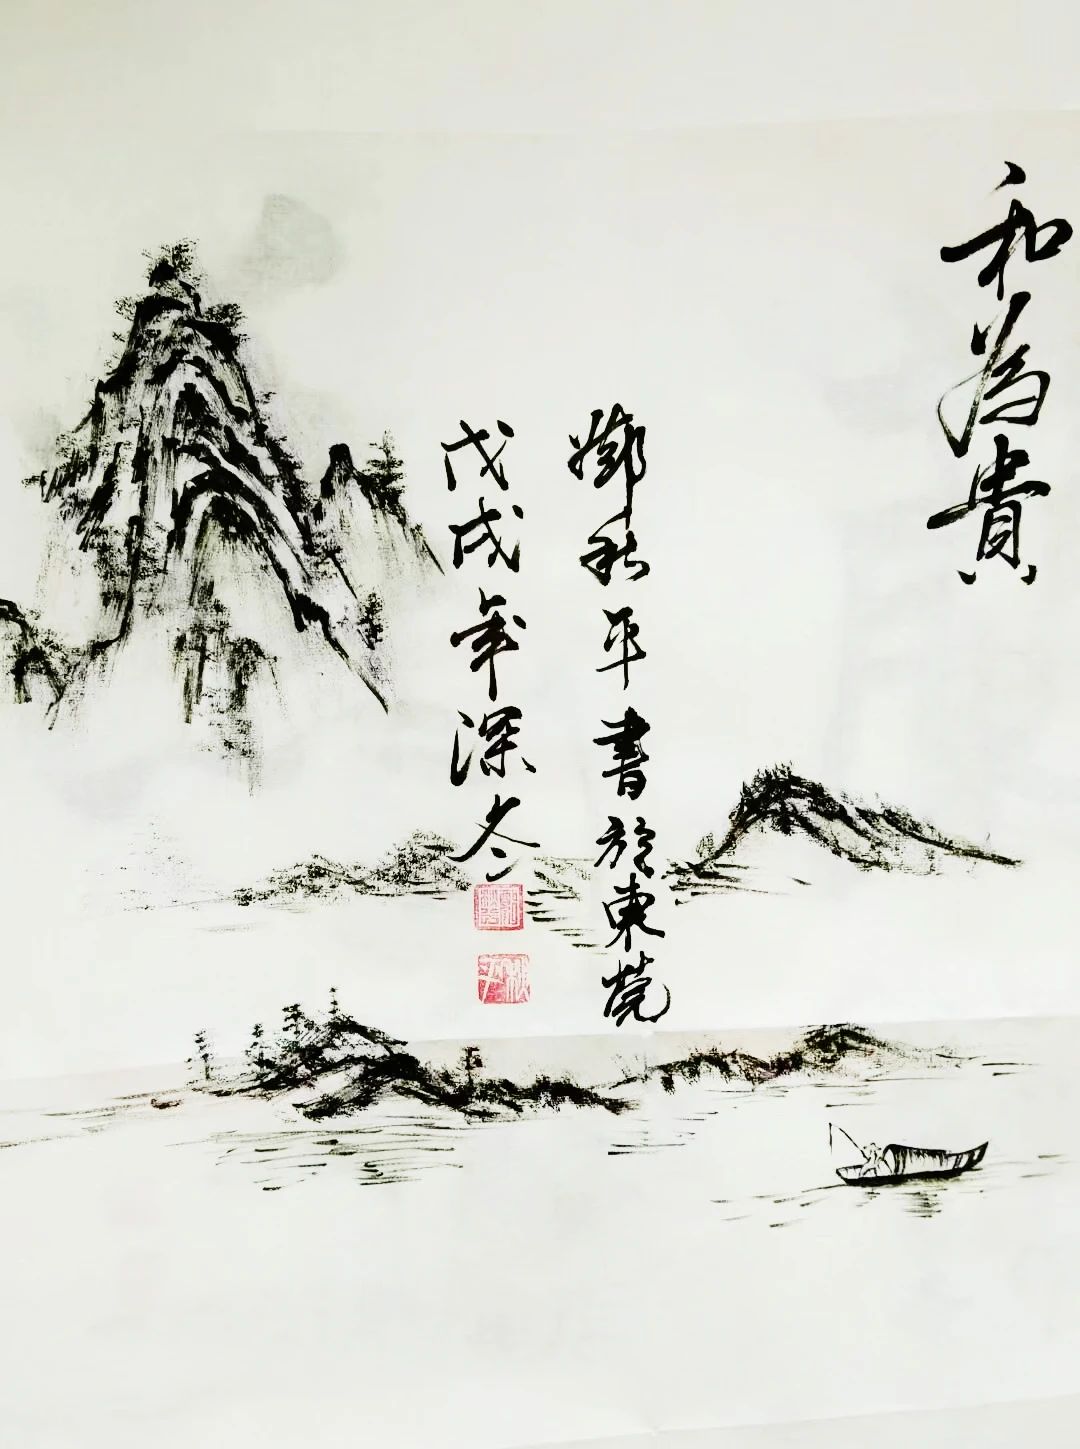 和為貴
秋平書於東莞
戊戌年深冬
秋平